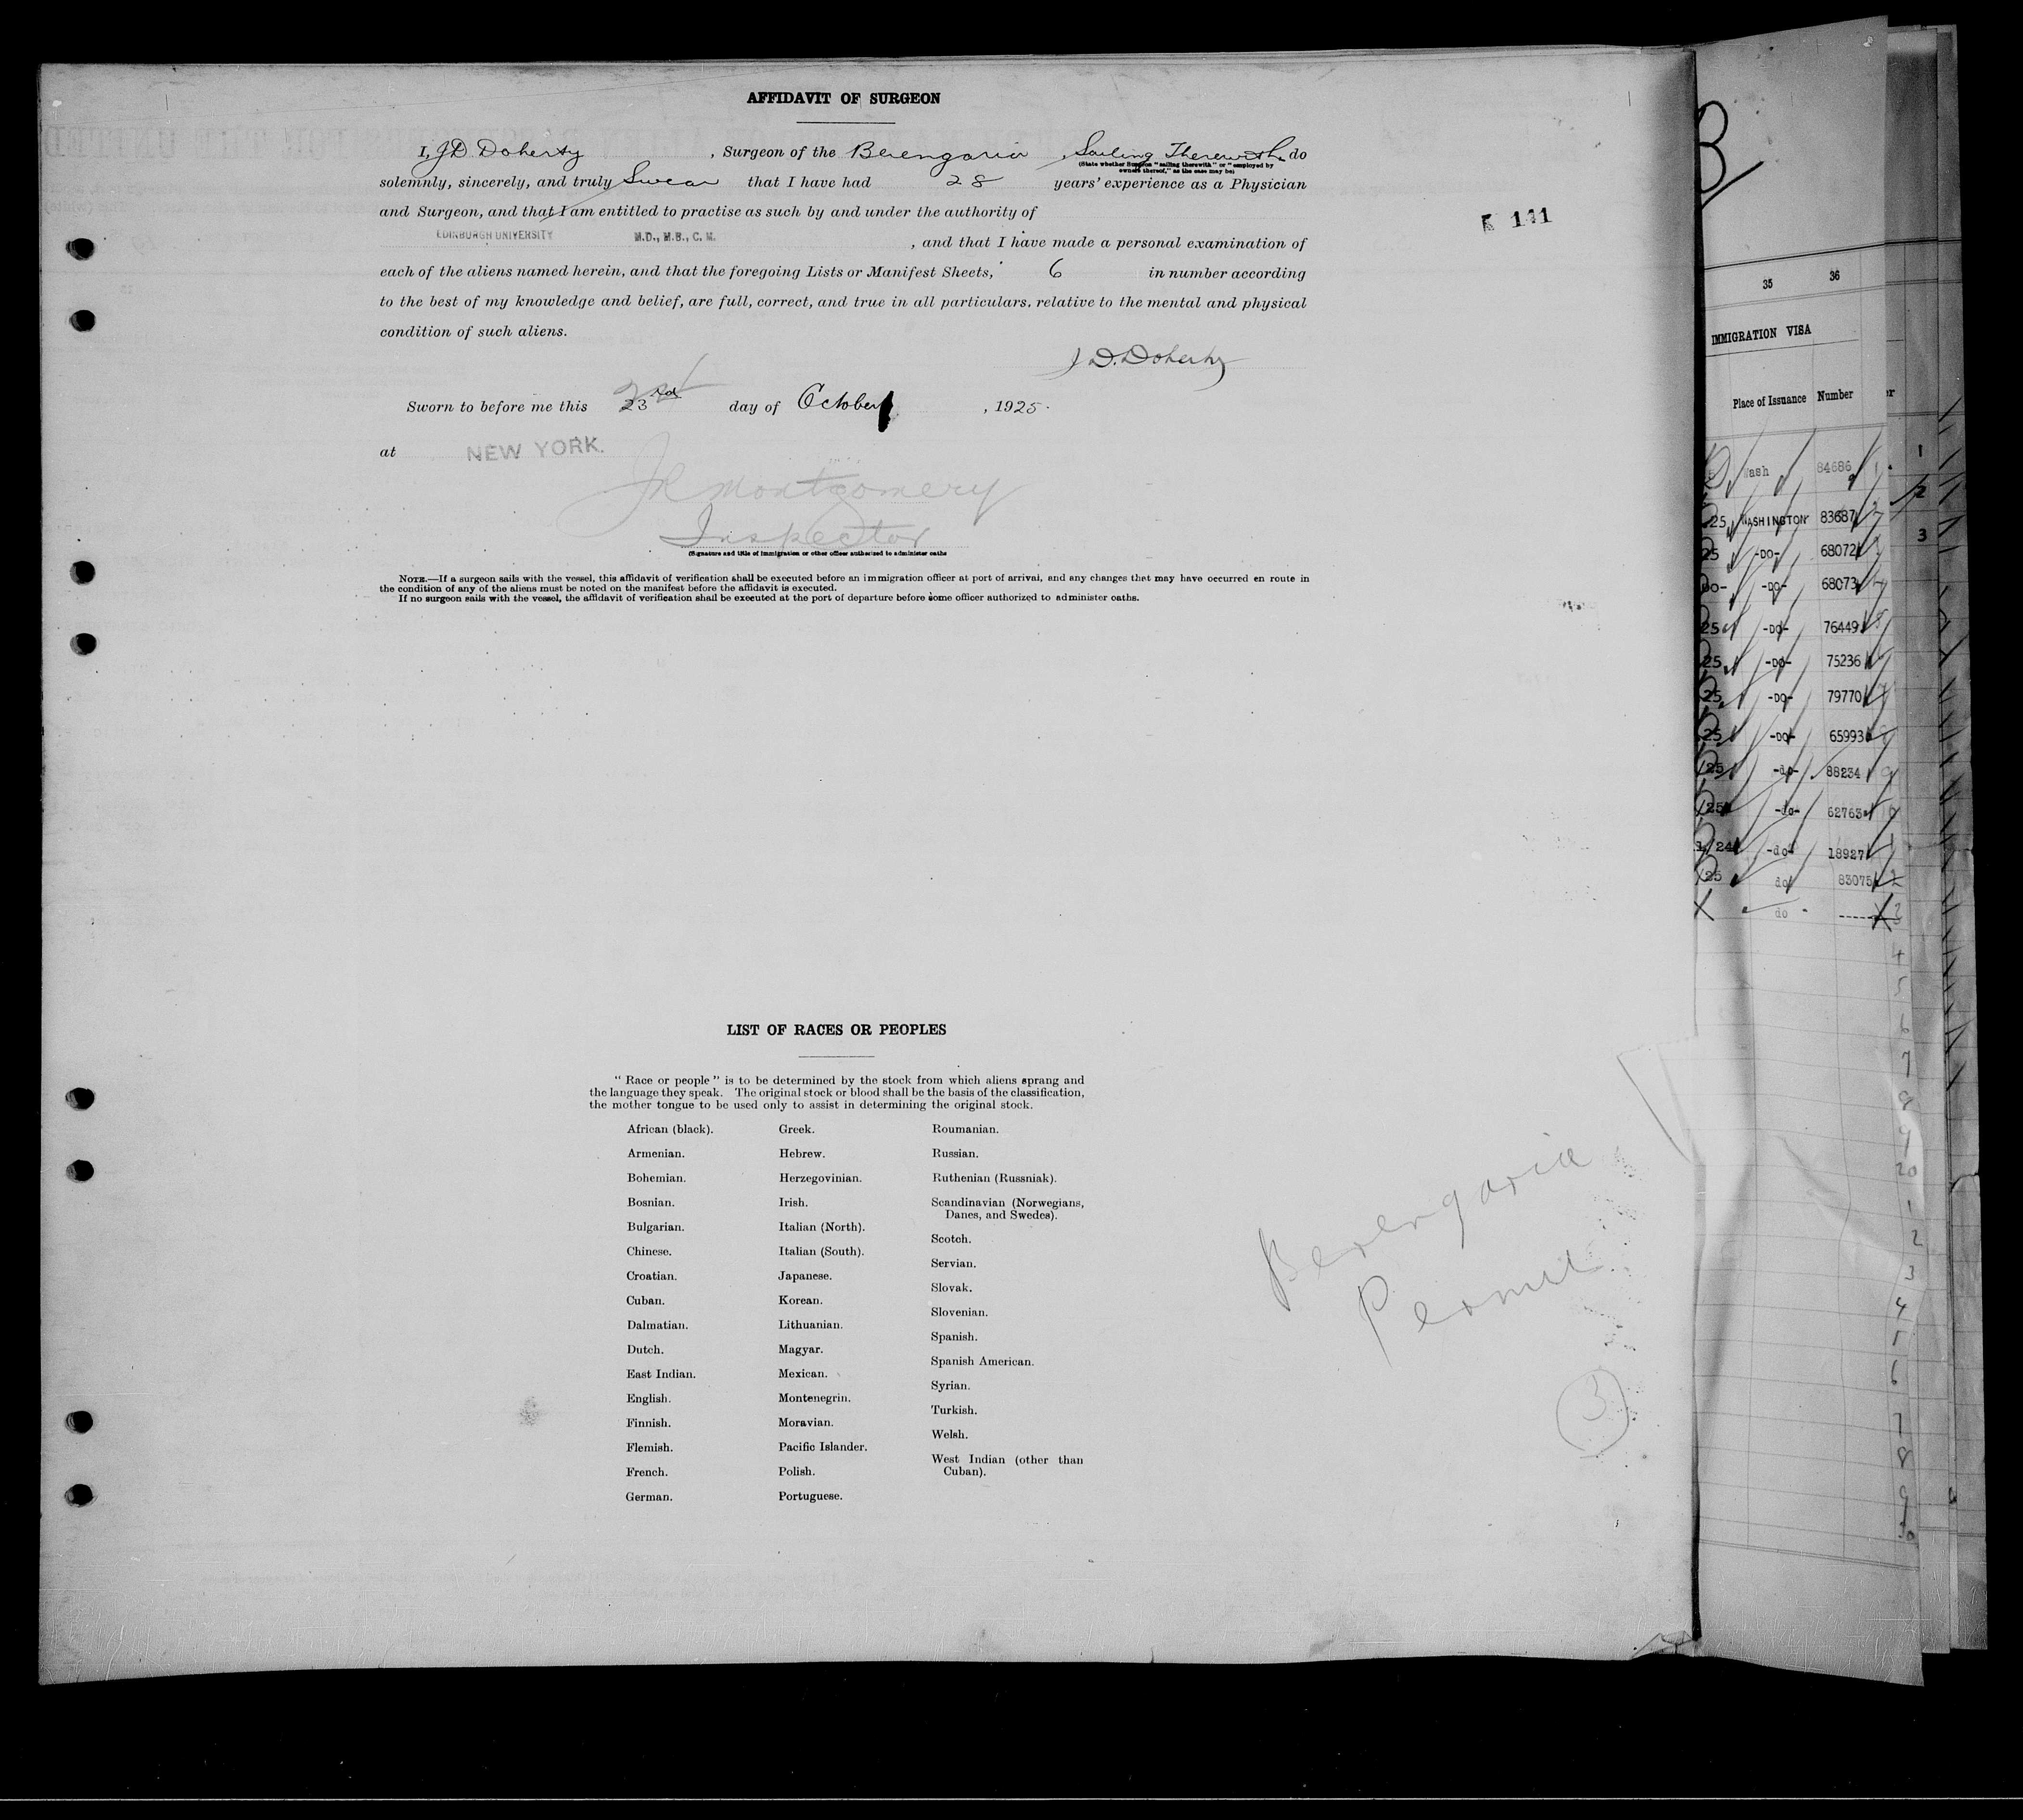 AFFIDAVIT OF SURGEON
I, J D Doherty , Surgeon of the Berengaria , Sailing Therewith do
(State whether Surgeon "sailing therewith" or "employed by
owners thereof," as the case may be)
solemnly, sincerely, and truly Swear that I have had 28 years' experience as a Physician
and Surgeon, and that I am entitled to practise as such by and under the authority of
EDINBURGH UNIVERSITY M.D., M.B., C.M. , and that I have made a personal examination of
each of the aliens named herein, and that the foregoing Lists or Manifest Sheets, 6 in number according
to the best of my knowledge and belief, are full, correct, and true in all particulars. relative to the mental and physical
condition of such aliens.
J D. Doherty
Sworn to before me this 23rd day of October , 1925.
at NEW YORK.
JR Montgomery
Inspector
(Signature and title of immigration or other officer authorized to administer oaths
NOTE.—If a surgeon sails with the vessel, this affidavit of verification shall be executed before an immigration officer at port of arrival, and any changes that may have occurred en route in
the condition of any of the aliens must be noted on the manifest before the affidavit is executed.
If no surgeon sails with the vessel, the affidavit of verification shall be executed at the port of departure before some officer authorized to administer oaths.
LIST OF RACES OR PEOPLES
"Race or people" is to be determined by the stock from which aliens sprang and
the language they speak. The original stock or blood shall be the basis of the classification,
the mother tongue to be used only to assist in determining the original stock.
African (black).
Armenian.
Bohemian.
Bosnian.
Bulgarian.
Chinese.
Croatian.
Cuban.
Dalmatian.
Dutch.
East Indian.
English.
Finnish.
Flemish.
French.
German.
Greek.
Hebrew.
Herzegovinian.
Irish.
Italian (North).
Italian (South).
Japanese.
Korean.
Lithuanian.
Magyar.
Mexican.
Montenegrin.
Moravian.
Pacific Islander.
Polish.
Portuguese.
Roumanian.
Russian.
Ruthenian (Russniak).
Scandinavian (Norwegians,
Danes, and Swedes).
Scotch.
Servian.
Slovak.
Slovenian.
Spanish.
Spanish American.
Syrian.
Turkish.
Welsh.
West Indian (other than
Cuban).
Berengaria
Permit
3
B
35 36
IMMIGRATION VISA
Place of Issuance Number
Wash 84686
25 WASHINGTON 83687
25 -DO- 68072
DO- -DO- 68073
25 -DO- 76449
25 -DO- 75236
25 -DO- 79770
25 -DO- 65993
/25 -do- 88234
/25 -do- 62763
1/24 -do- 18927
/25 do 83075
do -----
1
2
3